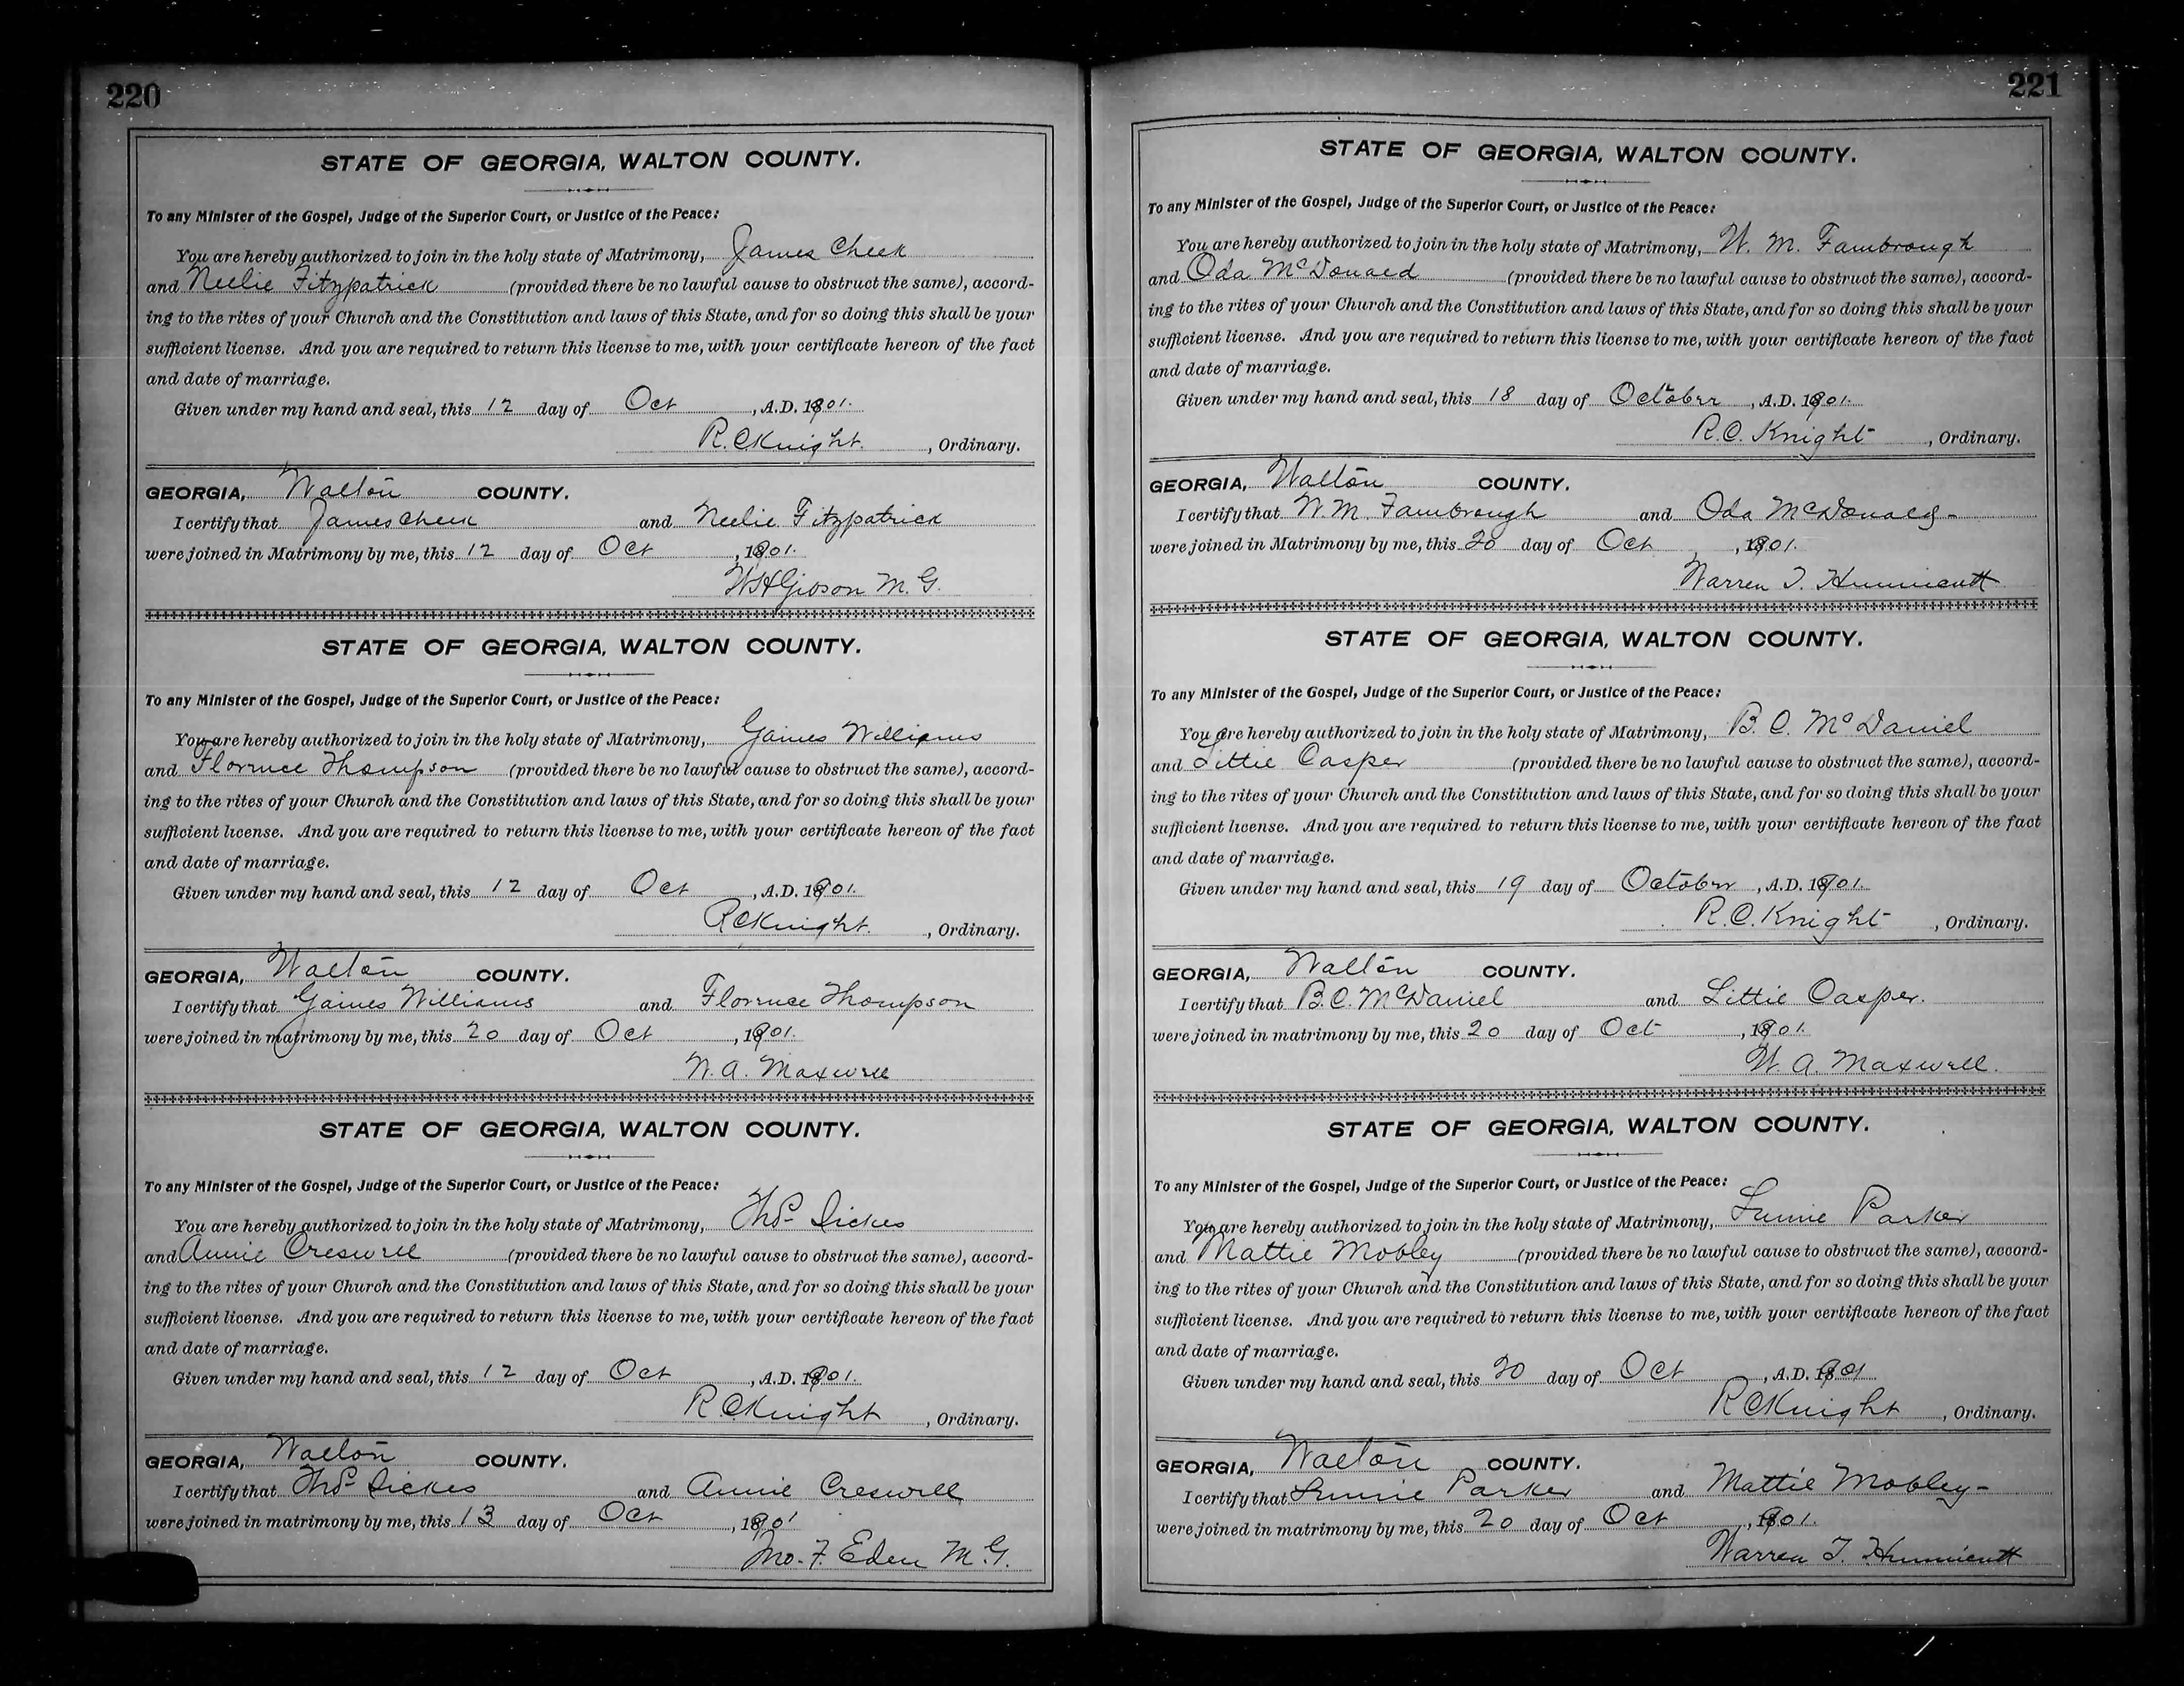 220
STATE OF GEORGIA, WALTON COUNTY.
To any Minister of the Gospel, Judge of the Superior Court, or Justice of the Peace:
You are hereby authorized to join in the holy state of Matrimony, James Cheek
and Neelie Fitzpatrick (provided there be no lawful cause to obstruct the same), accord-
ing to the rites of your Church and the Constitution and laws of this State, and for so doing this shall be your
sufficient license. And you are required to return this license to me, with your certificate hereon of the fact
and date of marriage.
Given under my hand and seal, this 12 day of Oct, A.D. 1901.
R.C. Knight, Ordinary.
GEORGIA, Walton COUNTY.
I certify that James Cheek and Neelie Fitzpatrick
were joined in Matrimony by me, this 12 day of Oct, 1901.
W H Gibson M. G.
STATE OF GEORGIA, WALTON COUNTY.
To any Minister of the Gospel, Judge of the Superior Court, or Justice of the Peace:
You are hereby authorized to join in the holy state of Matrimony, Gaines Williams
and Florence Thompson (provided there be no lawful cause to obstruct the same), accord-
ing to the rites of your Church and the Constitution and laws of this State, and for so doing this shall be your
sufficient license. And you are required to return this license to me, with your certificate hereon of the fact
and date of marriage.
Given under my hand and seal, this 12 day of Oct, A.D. 1901.
R C Knight, Ordinary.
GEORGIA, Walton COUNTY.
I certify that Gaines Williams and Florence Thompson
were joined in matrimony by me, this 20 day of Oct, 1901.
W. A. Maxwell
STATE OF GEORGIA, WALTON COUNTY.
To any Minister of the Gospel, Judge of the Superior Court, or Justice of the Peace:
You are hereby authorized to join in the holy state of Matrimony, Thos Dickes
and Annie Creswell (provided there be no lawful cause to obstruct the same), accord-
ing to the rites of your Church and the Constitution and laws of this State, and for so doing this shall be your
sufficient license. And you are required to return this license to me, with your certificate hereon of the fact
and date of marriage.
Given under my hand and seal, this 12 day of Oct, A.D. 1901.
R C Knight, Ordinary.
GEORGIA, Walton COUNTY.
I certify that Thos Dickes and Annie Creswell
were joined in matrimony by me, this 13 day of Oct, 1901
Jno. F. Eden M. G.
221
STATE OF GEORGIA, WALTON COUNTY.
To any Minister of the Gospel, Judge of the Superior Court, or Justice of the Peace:
You are hereby authorized to join in the holy state of Matrimony, W. M. Fambrough
and Oda McDonald (provided there be no lawful cause to obstruct the same), accord-
ing to the rites of your Church and the Constitution and laws of this State, and for so doing this shall be your
sufficient license. And you are required to return this license to me, with your certificate hereon of the fact
and date of marriage.
Given under my hand and seal, this 18 day of October, A.D. 1901.
R.C. Knight, Ordinary.
GEORGIA, Walton COUNTY.
I certify that W. M. Fambrough and Oda McDonald-
were joined in Matrimony by me, this 20 day of Oct, 1901.
Warren T. Hunnicutt
STATE OF GEORGIA, WALTON COUNTY.
To any Minister of the Gospel, Judge of the Superior Court, or Justice of the Peace:
You are hereby authorized to join in the holy state of Matrimony, B. C. McDaniel
and Littie Casper (provided there be no lawful cause to obstruct the same), accord-
ing to the rites of your Church and the Constitution and laws of this State, and for so doing this shall be your
sufficient license. And you are required to return this license to me, with your certificate hereon of the fact
and date of marriage.
Given under my hand and seal, this 19 day of October, A.D. 1901.
R.C. Knight, Ordinary.
GEORGIA, Walton COUNTY.
I certify that B.C. McDaniel and Littie Casper.
were joined in matrimony by me, this 20 day of Oct, 1901.
W. A. Maxwell.
STATE OF GEORGIA, WALTON COUNTY.
To any Minister of the Gospel, Judge of the Superior Court, or Justice of the Peace:
You are hereby authorized to join in the holy state of Matrimony, Lunie Parker
and Mattie Mobley (provided there be no lawful cause to obstruct the same), accord-
ing to the rites of your Church and the Constitution and laws of this State, and for so doing this shall be your
sufficient license. And you are required to return this license to me, with your certificate hereon of the fact
and date of marriage.
Given under my hand and seal, this 20 day of Oct, A.D. 1901
R C Knight, Ordinary.
GEORGIA, Walton COUNTY.
I certify that Lunie Parker and Mattie Mobley-
were joined in matrimony by me, this 20 day of Oct, 1901.
Warren T. Hunnicutt